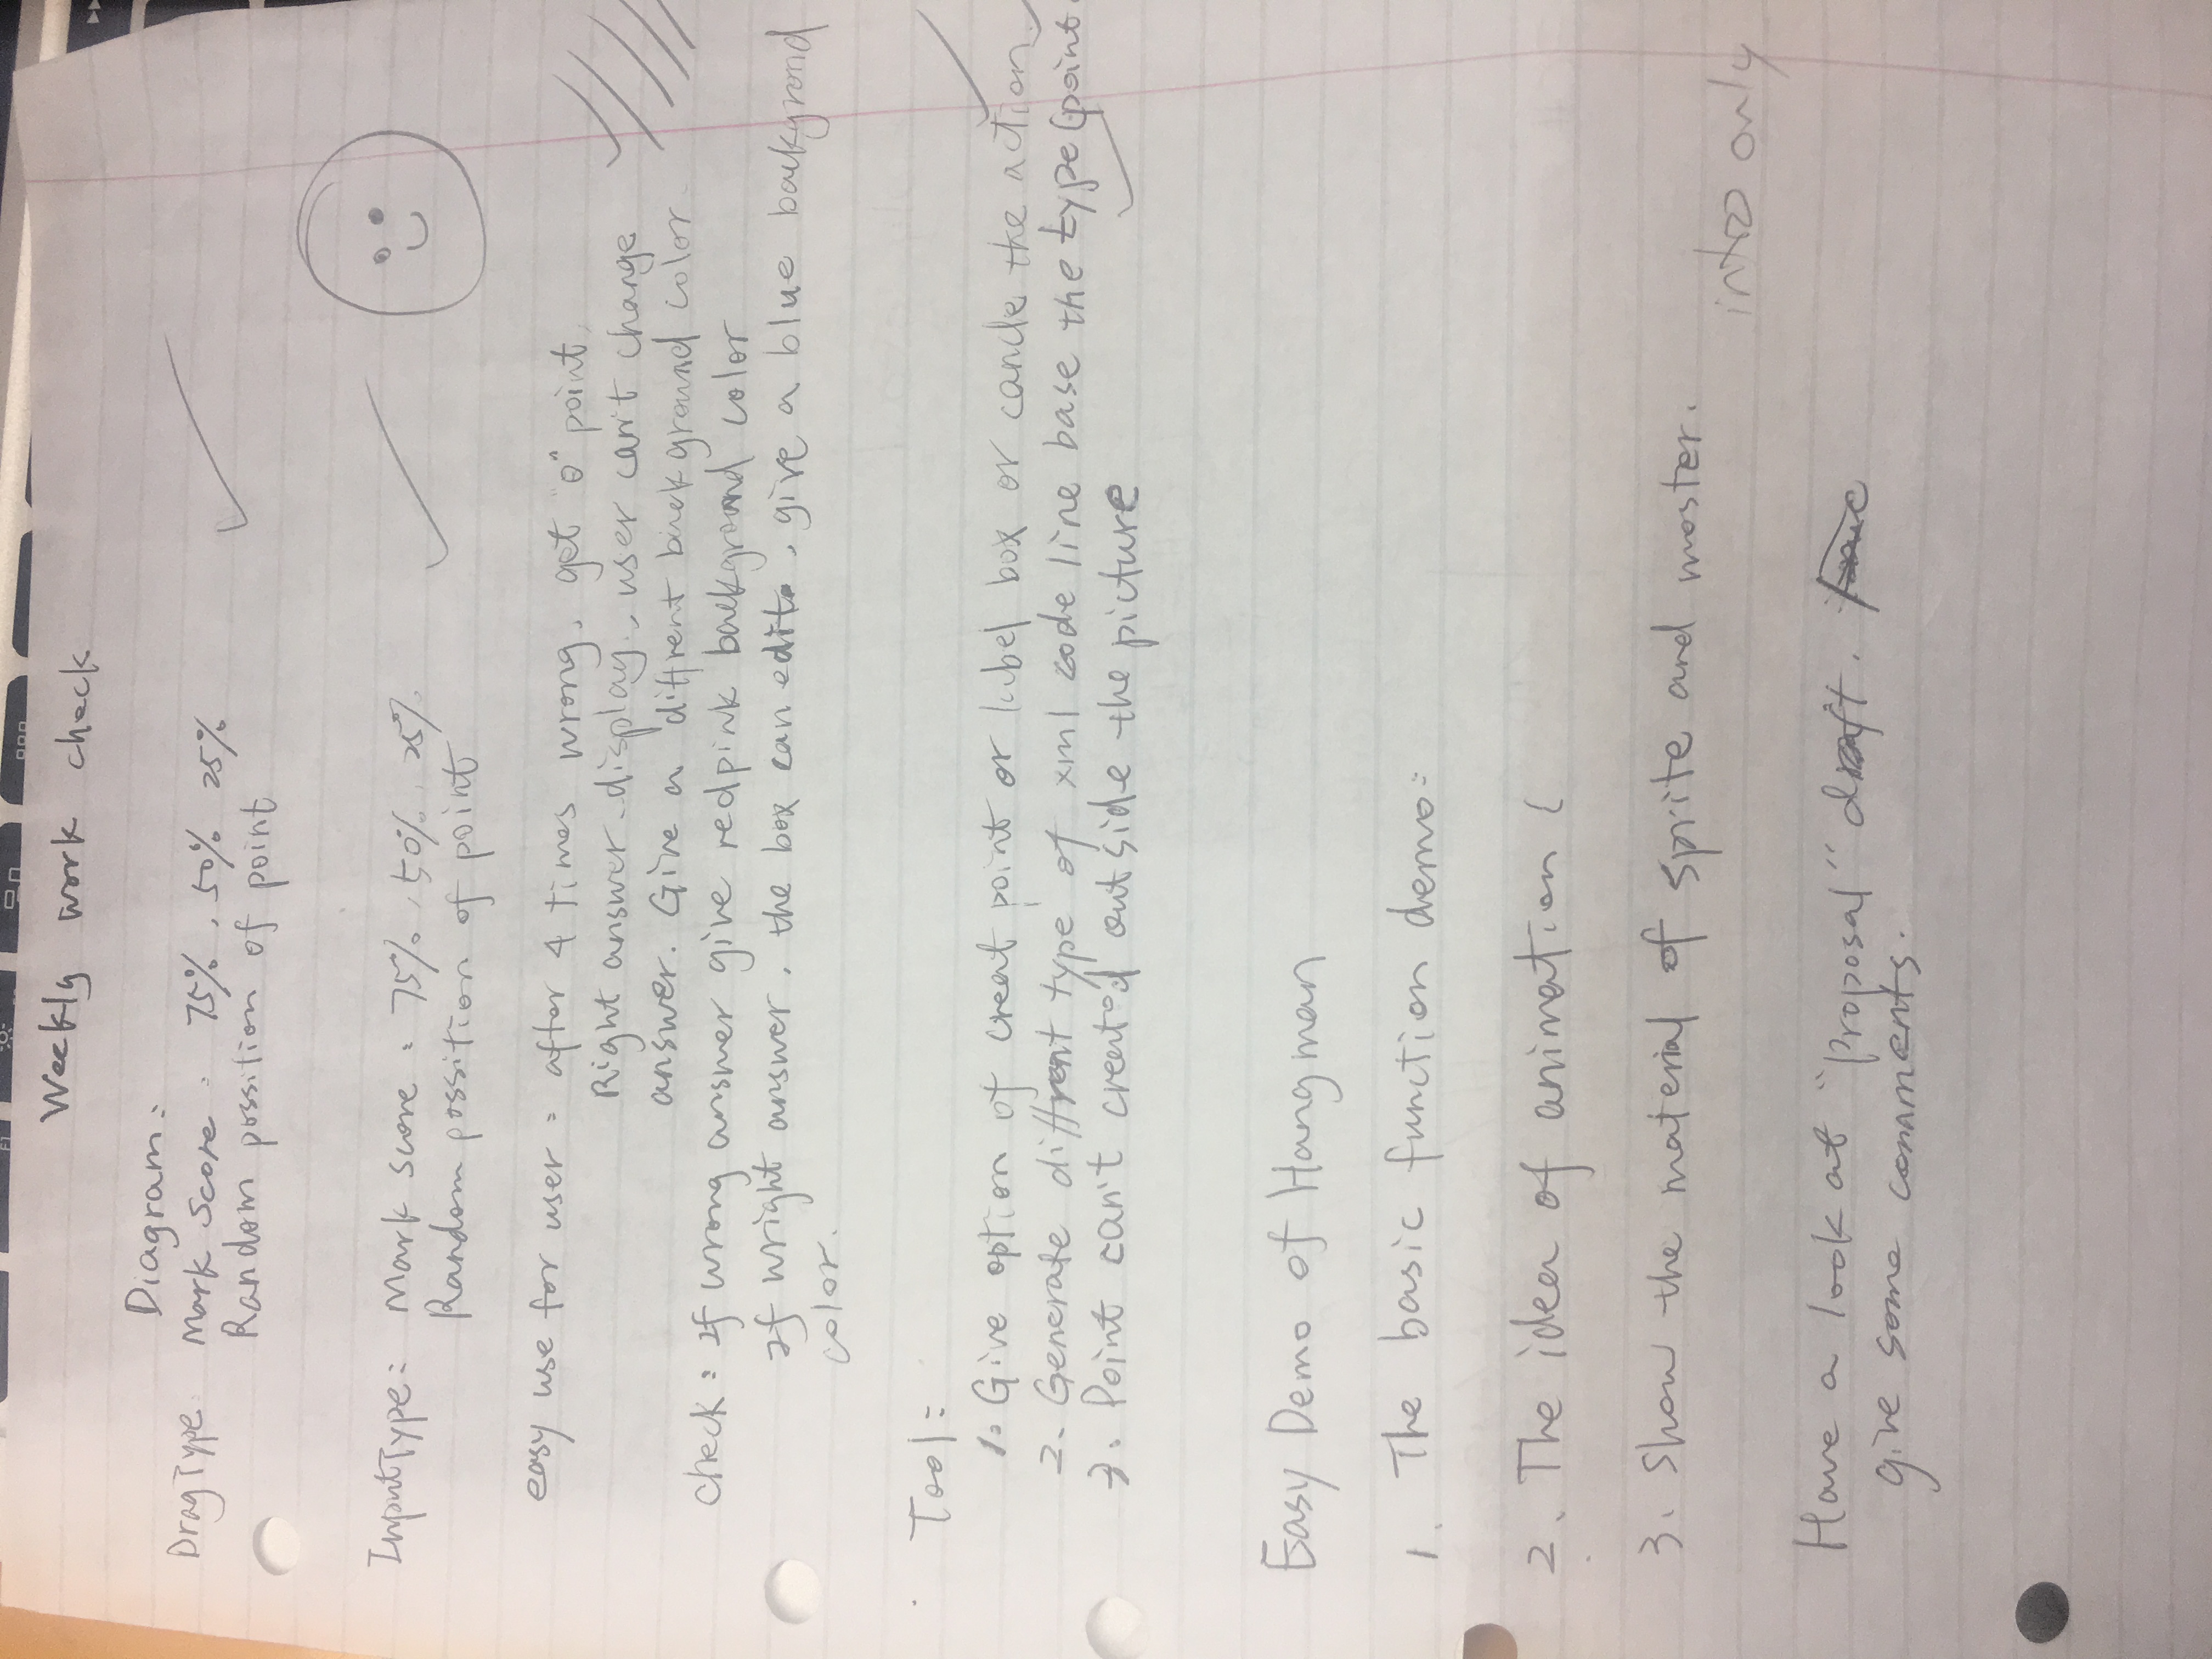 Weekly work check
Diagram:
DragType Mark Score : 75%, 50% 25%
Random possition of point
InputType: Mark score : 75%, 50%, 25%
Random possition of point
easy use for user: after 4 times wrong, get "0" point,
Right answer display, user can't change
answer. Give a diffrent background color.
check: If wrong answer give redpink background color
If wright answer, the box can edit, give a blue backgrond
color.
Tool:
1. Give option of creat point or label box or cancle the action
2. Generate diffrent type of xml code line base the type (point
3. Point can't created outside the picture
Easy Demo of Hangman
1. The basic function demo:
2. The idea of animation (
3. Show the material of sprite and moster.
intro only
Have a look at "Proposal" draft.
give some comments.